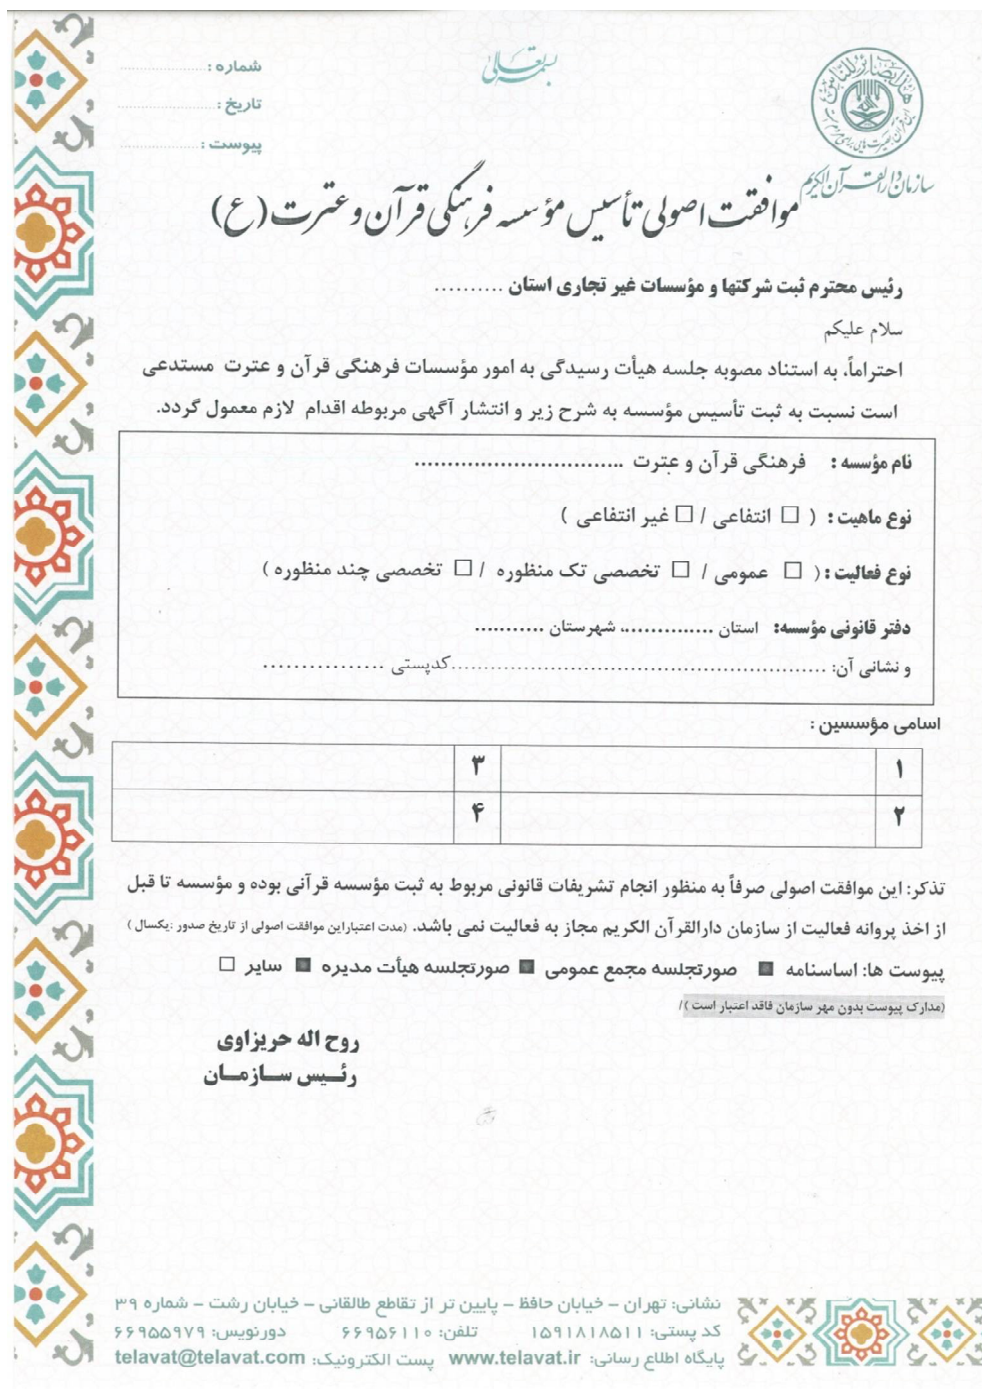 بسمه تعالی
شماره : ........................
تاریخ : ........................
پیوست : ........................
هذا بصائر للناس
سازمان دارالقرآن الکریم
موافقت اصولی تأسیس مؤسسه فرهنگی قرآن و عترت (ع)
رئیس محترم ثبت شرکتها و مؤسسات غیر تجاری استان ..........
سلام علیکم
احتراماً، به استناد مصوبه جلسه هیأت رسیدگی به امور مؤسسات فرهنگی قرآن و عترت مستدعی
است نسبت به ثبت تأسیس مؤسسه به شرح زیر و انتشار آگهی مربوطه اقدام لازم معمول گردد.
نام مؤسسه : فرهنگی قرآن و عترت ................................
نوع ماهیت : ( □ انتفاعی / □ غیر انتفاعی )
نوع فعالیت : ( □ عمومی / □ تخصصی تک منظوره / □ تخصصی چند منظوره )
دفتر قانونی مؤسسه: استان ..............، شهرستان ...........
و نشانی آن: ..........................................................کدپستی ................
اسامی مؤسسین :
۱ ۳
۲ ۴
تذکر: این موافقت اصولی صرفاً به منظور انجام تشریفات قانونی مربوط به ثبت مؤسسه قرآنی بوده و مؤسسه تا قبل
از اخذ پروانه فعالیت از سازمان دارالقرآن الکریم مجاز به فعالیت نمی باشد. (مدت اعتباراین موافقت اصولی از تاریخ صدور :یکسال )
پیوست ها: اساسنامه ■ صورتجلسه مجمع عمومی ■ صورتجلسه هیأت مدیره ■ سایر □
(مدارک پیوست بدون مهر سازمان فاقد اعتبار است )/
روح اله حریزاوی
رئیس سازمان
نشانی: تهران – خیابان حافظ – پایین تر از تقاطع طالقانی – خیابان رشت – شماره ۳۹
کد پستی: ۱۵۹۱۸۱۸۵۱۱ تلفن: ۶۶۹۵۶۱۱۰ دورنویس: ۶۶۹۵۵۹۷۹
پایگاه اطلاع رسانی: www.telavat.ir پست الکترونیک: telavat@telavat.com